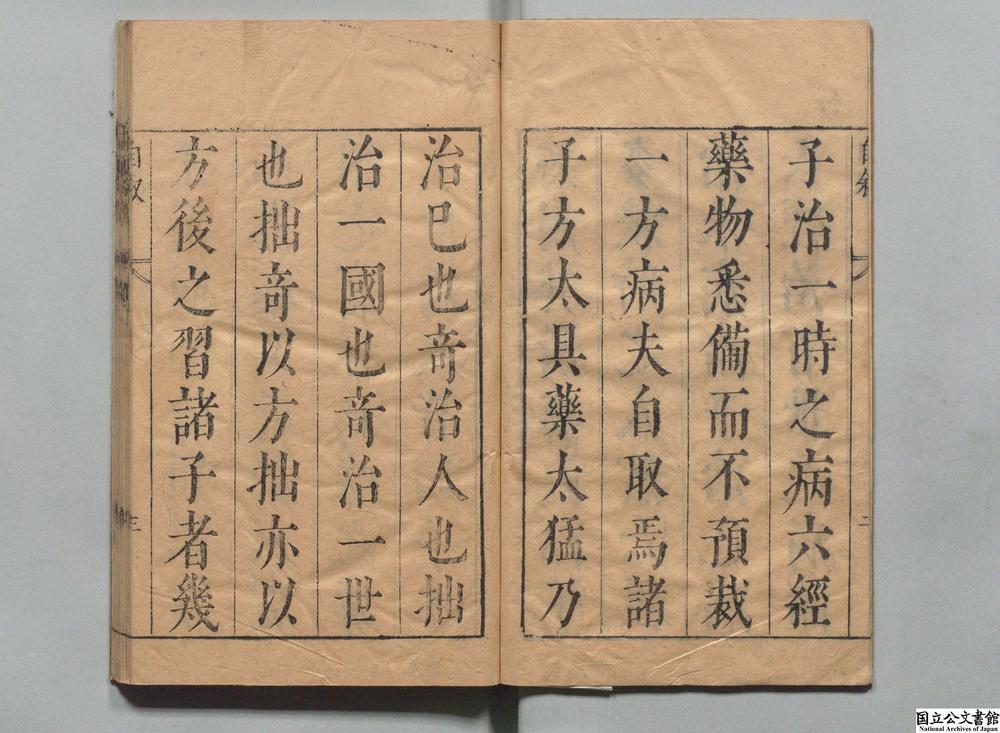 子治一時之病六經
藥物悉備而不預裁
一方病夫自取焉諸
子方太具藥太猛乃
治巳也竒治人也拙
治一國也竒治一世
也拙竒以方拙亦以
方後之習諸子者幾
三
国立公文書館
National Archives of Japan